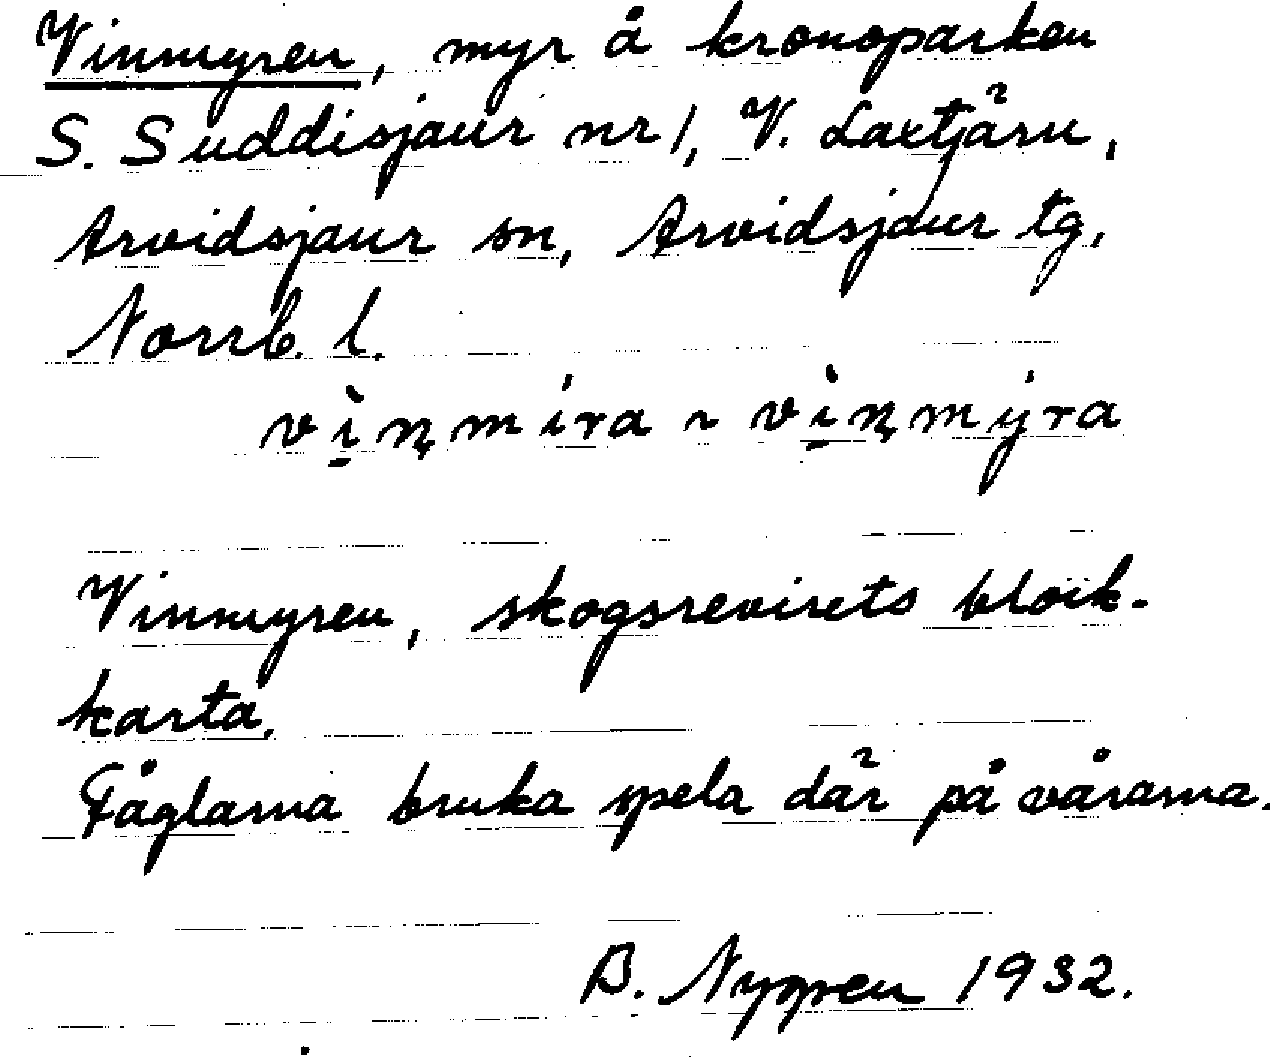 Vinmyren, myr å kronoparken
S. Suddisjaur nr 1, V. Laxtjärn,
Arvidsjaur sn, Arvidsjaur tg,
Norrb. l.
vı̠̀n̢míra ~ vı̠̀n̢mýra
Vinmyren, skogsrevirets block-
karta.
Fåglarna bruka spela där på vårarna.
B. Nygren 1932.